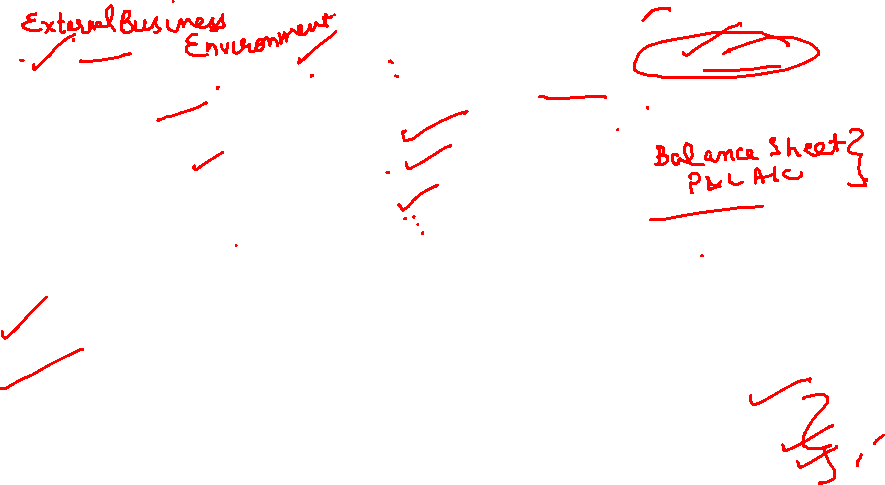 External Business
Environment
Balance Sheet
P&L A/C